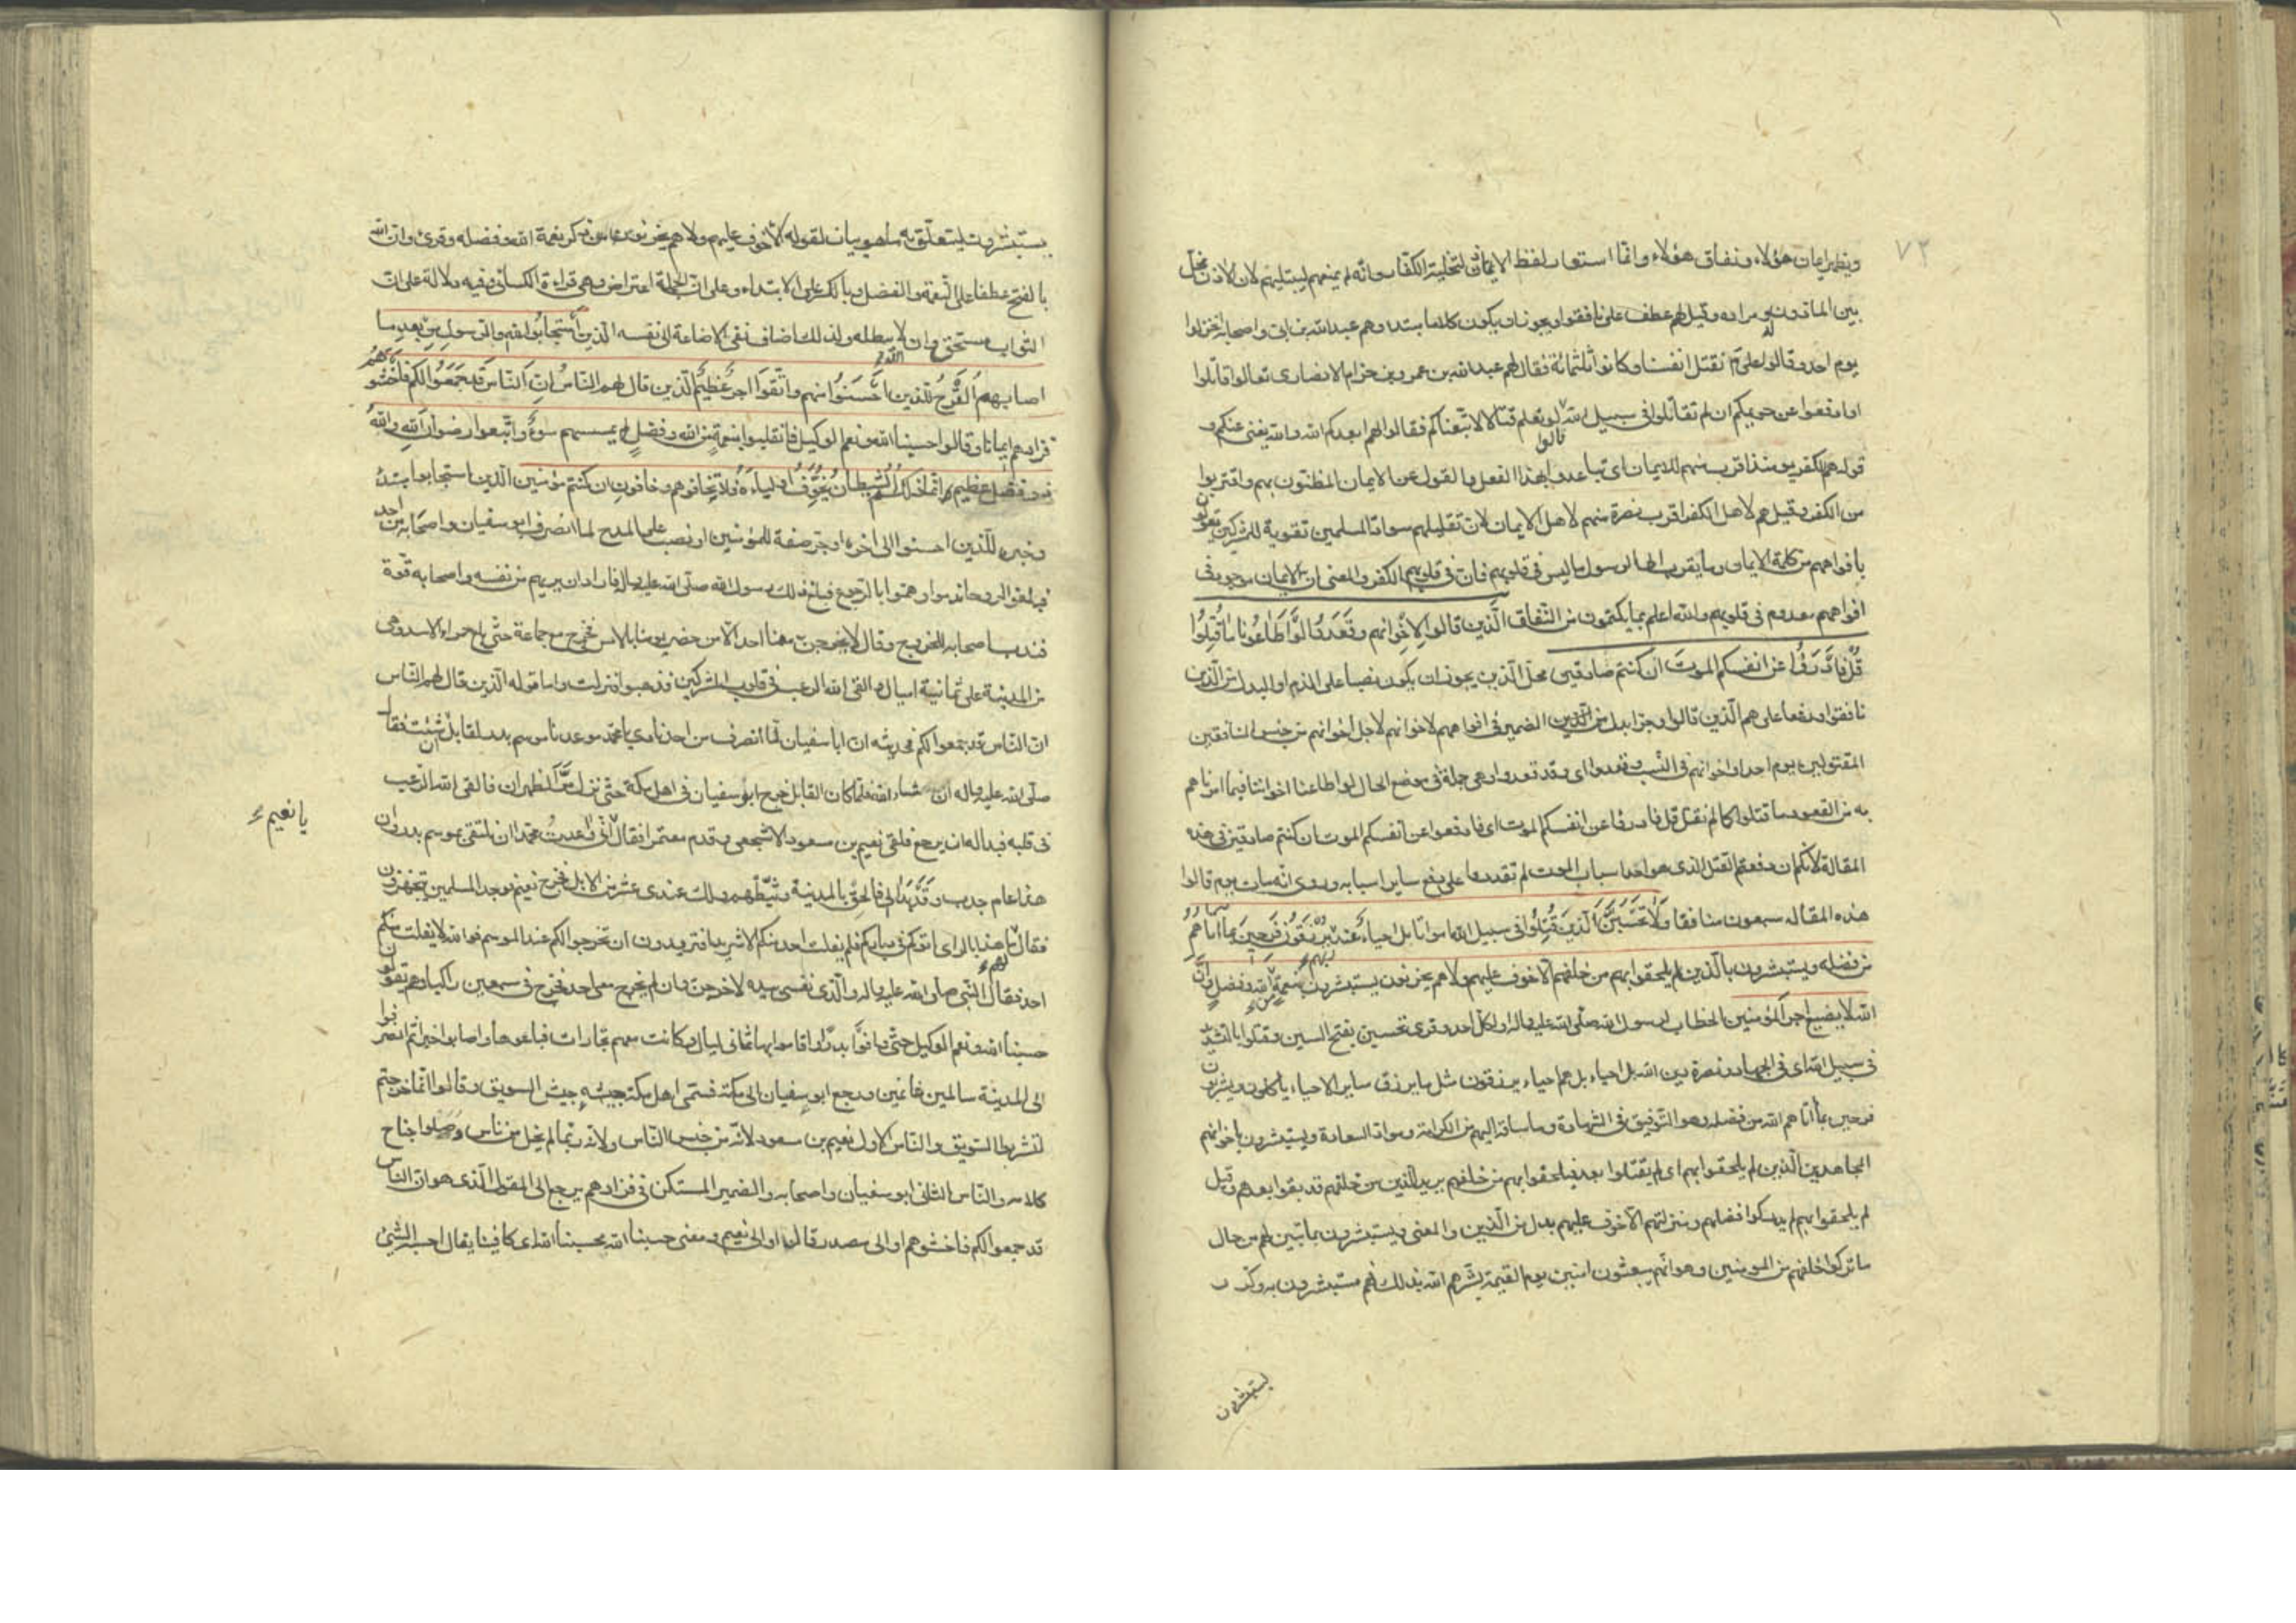 ٧٢
ويظهر ايمان هؤلاء ونفاق هؤلاء وانما استعار لفظ الايذان لتخلية الكفار وانه لم يمنعهم ليبتليهم لان الاذن يخل
بين الماذون له ومراده وقيل لهم عطف على نافقوا ويجوز ان يكون كلاما مبتدا وهم عبد الله بن ابي واصحابه انخزلوا
يوم احد وقالوا على م نقتل انفسنا وكانوا ثلثمائة فقال لهم عبد الله بن عمرو بن حزام الانصاري تعالوا قاتلوا
او ادفعوا عن حريمكم ان لم تقاتلوا في سبيل الله قالوا لو نعلم قتالا لاتبعناكم فقالوا لهم ابعدكم الله والله يغني عنكم و
قوله هم للكفر يومئذ اقرب منهم للايمان اى تباعدوا بهذا الفعل والقول عن الايمان المظنون بهم واقتربوا
من الكفر وقيل هم لاهل الكفر اقرب نصرة منهم لاهل الايمان لان تقليلهم سواد المسلمين تقوية للمشركين يقولون
بافواههم من كلمة الايمان وما يقرب الى الرسول ما ليس في قلوبهم فان في قلوبهم الكفر والمعنى ان الايمان موجود في
افواههم معدوم في قلوبهم والله اعلم بما يكتمون من النفاق الَّذين قالوا لاِخْوانهم وقَعَدوا لَوْ اَطاعُونا ما قُتِلُوا
قُلْ فادْرَؤُا عن انفسكم الموت ان كنتم صادقين محل الذين يجوز ان يكون نصبا على الذم او البدل من الذين
نافقوا ورفعا على هم الذين قالوا وجرا بدل من الضمير في افواههم لاخوانهم لاجل اخوانهم من جنس المنافقين
المقتولين يوم احد او اخوانهم في النسب وقعدوا اى وقد قعدوا وهي جملة في موضع الحال لو اطاعنا اخواننا فيما امرناهم
به من القعود ما قتلوا كما لم نقتل قل فادرؤا عن انفسكم الموت اى فادفعوا عن انفسكم الموت ان كنتم صادقين في هذه
المقالة لانكم ان دفعتم القتل الذى هو احد اسباب الموت لم تقدروا على دفع ساير اسبابه وروى انه مات يوم قالوا
هذه المقاله سبعون منافقا وَلا تَحْسَبَنَّ الَّذين قُتِلُوا في سبيل الله امواتا بل احياء عند ربهم يرزقون فرحين بما اتاهم
من فضله ويستبشرون بالَّذين لم يلحقوا بهم من خلفهم الا خوف عليهم ولا هم يحزنون يستبشرون بنعمة من الله وفضل وانَّ
الله لا يضيع اجر المؤمنين الخطاب لرسول الله صلى الله عليه واله او لكل احد وقرى تحسبن بفتح السين وقتلوا بالتشديد
في سبيل الله اى في الجهاد ونصرة دين الله بل احياء بل هم احياء يرزقون مثل ما يرزق ساير الاحياء ياكلون ويشربون
فرحين بما اتاهم الله من فضله وهو التوفيق في الشهادة وما ساقه اليهم من الكرامة وسواد السعادة ويستبشرون باخوانهم
المجاهدين الذين لم يلحقوا بهم اى لم يقتلوا بعد فيلحقوا بهم من خلفهم يريد الذين من خلفهم قد بقوا بعدهم وقيل
لم يلحقوا بهم لم يدركوا فضلهم ومنزلتهم الا خوف عليهم بدل من الذين والمعنى ويستبشرون بما تبين لهم من حال
ما تركوا خلفهم من المومنين وهو انهم يبعثون امنين يوم القيمة بشرهم الله بذلك فهم مستبشرون به وكرر
يستبشرون
يستبشرون ليتعلق به ما هو بيان لقوله الا خوف عليهم ولا هم يحزنون من ذكر نعمة الله وفضله وقرئ وان الله
بالفتح عطفا على النعمة والفضل وبالكسر على الابتداء وعلى ان الجملة اعتراض وهي قراءة الكسائي وفيه دلالة على ان
الثواب مستحق وان لا يبطله ولذلك اضاف نفى الاضاعة الى نفسه الَّذين اسْتَجابُوا لله والرسول من بعد ما
اصابهم القَرْحُ للّذين اَحْسَنُوا منهم واتّقَوْا اجر عظيم الَّذين قال لهم الناسُ ان النّاس قد جَمَعُوا لكم فاخْشَوْهُمْ
فزادهم ايمانا وقالوا حسبنا الله ونعم الوكيل فانقلبوا بنعمة من الله وفضل لم يمسسهم سوء واتبعوا رضوان الله والله
ذو فضل عظيم انما ذلكم الشيطان يُخَوِّفُ اولياءه فلا تخافوهم وخافون ان كنتم مؤمنين الذين استجابوا مبتدء
وخبره للذين احسنوا الى اخره او جر صفة للمؤمنين او نصب على المدح لما انصرف ابو سفيان واصحابه من احد
فبلغوا الروحا ندموا وهموا بالرجوع فبلغ ذلك رسول الله صلى الله عليه واله فاراد ان يريهم من نفسه واصحابه قوة
فندب اصحابه للخروج وقال لا يخرجن معنا احد الا من حضر يومنا بالامس فخرج مع جماعة حتى بلغ حمراء الاسد وهي
من المدينة على ثمانية اميال والقى الله الرعب في قلوب المشركين فذهبوا فنزلت واما قوله الذين قال لهم الناس
ان الناس قد جمعوا لكم فروى انه ان ابا سفيان لما انصرف من احد نادى يا محمد موعدنا موسم بدر لقابل ان شئت فقال
صلى الله عليه واله ان شاء الله فلما كان القابل خرج ابو سفيان في اهل مكة حتى نزل مَرَّ الظهران فالقى الله الرعب
في قلبه فبدا له ان يرجع فلقى نعيم بن مسعود الاشجعى وقدم معتمرا فقال يا نعيم انى واعدت محمدا ان نلتقى بموسم بدر وان
هذا عام جدب وقد بدا لى فالحق بالمدينة وثبّطهم ولك عندى عشر من الابل فخرج نعيم فوجد المسلمين يتجهزون
فقال لهم ما هذا بالراى اتوكم في دياركم فلم يفلت احد منكم الا شريد افتريدون ان تخرجوا لكم عند الموسم فوالله لا يفلت منكم
احد فقال النبى صلى الله عليه واله والذى نفسى بيده لاخرجن وان لم يخرج معى احد فخرج في سبعين راكبا وهم يقولون
حسبنا الله ونعم الوكيل حتى وافوا بدرا واقاموا بها ثمانى ليال وكانت معهم تجارات فباعوها واصابوا خيرا ثم انصرفوا
الى المدينة سالمين غانمين ورجع ابو سفيان الى مكة فسمى اهل مكة جيشه جيش السويق وقالوا انما خرجتم
لتشربوا السويق والناس الاول نعيم بن مسعود لانه من جنس الناس ولانه ربما لم يخل من ناس وصلوا جناح
كلامه والناس الثانى ابو سفيان واصحابه والضمير المستكن في فزادهم يرجع الى المقول الذى هو ان الناس
قد جمعوا لكم فاخشوهم او الى مصدر قالوا او الى نعيم ومعنى حسبنا الله محسبنا الله اى كافينا يقال احسبه الشئ
يا نعيم